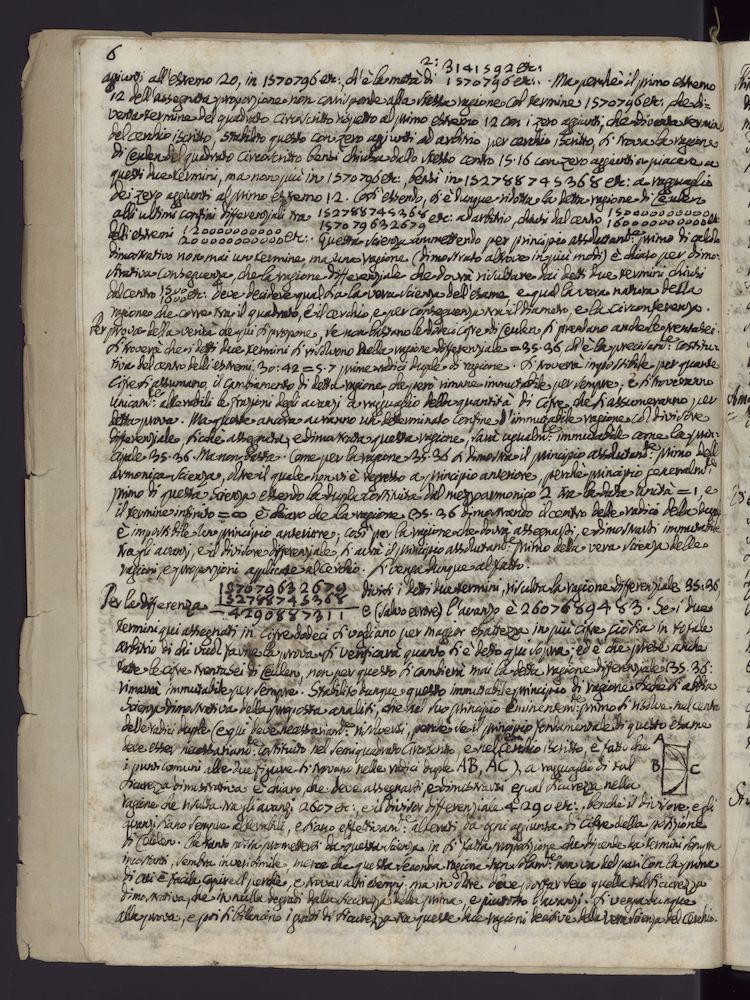 6
2: 3141592 etc:
aggiunti all'estremo 20, in 1570796 etc:, ch'è la metà di 1570796 etc: . Ma perchè il primo estremo
12 dell'assegnata proporzione non corrisponde alla stessa ragione col termine 1570796 etc: che di-
venta termine del quadrato circoscritto rispetto al primo estremo 12 con i zero aggiunti, che diventa termine
del cerchio iscritto, stabilito questo con zero aggiunti ad arbitrio per cerchio iscritto, si trova la ragione
di Ceulen del quadrato circoscritto bensì chiusa dallo stesso cento 15.16 con zero aggiunti a piacere a
questi due termini, ma non più in 1570796 etc: bensì in 152788745368 etc: a ragguaglio
dei zero aggiunti al primo estremo 12. Così essendo, si è dunque ridotta la detta ragione di Ceulen
alli ultimi confini differenziali tra 152788745368 etc: ad arbitrio, chiusi dal cento 150000000000
157079632679 160000000000 etc:
delli estremi 120000000000
200000000000 etc: . Questa scienza ammettendo per principio assolutamte: primo di calcolo
dimostrativo non mai un termine, ma una ragione (dimostrato altrove in più modi) è chiaro per dimo-
strativa conseguenza, che la ragione differenziale che dovrà risultare dai detti due termini chiusi
dal cento 1500
1600 etc: deve decidere qual sia la vera scienza dell'esame e qual la vera natura della
ragione che corre tra il quadrato, e il cerchio, e per conseguenza tra il diametro, e la circonferenza.
Per prova della verità di qui si propone, se non bastano le dodeci cifre di Ceulen si prendano anche le trentasei.
Si troverà che i detti due termini si risolvono nella ragione differenziale = 35.36 ch'è la precisamte: costitu-
tiva del cento delli estremi 30:42 = 5.7 prime radici duple di ragione. Si troverà impossibile per quante
cifre si assumano, il cambiamento di detta ragione che però rimane immutabile per sempre, e si troveranno
unicamte: alterabili le frazioni degli avanzi a ragguaglio della quantità di cifre, che si assumeranno per
detta prova. Ma queste ancora avranno un determinato confine d'immutabile ragione col divisore
differenziale, sicchè assegnata, e dimostrata questa ragione, sarà ugualmte: immutabile come la prin-
cipale 35.36. Ma non basta. Come per la ragione 35.36 si dimostra il principio assolutamte: primo dell'
armonica scienza, oltre il quale non vi è regresso a principio anteriore, perchè principio generalmte:
primo di questa scienza essendo la dupla costituita dal mezzo armonico 2 tra la data unità = 1, e
il termine infinito = ∞ è chiaro che la ragione 35.36 dimostrando il centro delle radici della dupla
è impossibile un principio anteriore; così per la ragione che dovrà assegnarsi, e dimostrarsi immutabile
tra gli avanzi, e il divisore differenziale, si avrà il principio assolutamte: primo della vera scienza delle
ragioni, e proporzioni applicate al cerchio. Si venga dunque al fatto.
Per la differenza 157079632679
152788745368
4290887311 divisi i detti due termini, risulta la ragione differenziale 35:36,
e (salvo errore) l'avanzo è 2607689483. Se i due
termini qui assegnati in cifre dodeci si vogliano per maggior esattezza in più cifre (ciò sia in totale
arbitrio di chi vuol farne la prova) si verificarà quanto si è detto qui sopra; ed è che prese anche
tutte le cifre trentasei di Ceulen, non per questo si cambierà mai la detta ragione differenziale 35.36:
rimarrà immutabile per sempre. Stabilito dunque questo immutabile principio di ragione
scienza dimostrativa della supposta analisi, che nel suo principio eminentemte: primo si risolve nel cento
delle radici duple (e gli deve necessariamte: risolversi, perchè se il principio fondamentale di questo esame
deve esser necessariamte: costituito nel semiquadrato circoscritto, e nel cerchio iscritto, è fatto che
i punti comuni alle due figure si trovano nelle radici duple AB, AC), a ragguaglio di tal
sicurezza dimostrativa è chiaro, che deve assegnarsi, e dimostrarsi egual sicurezza nella
A
B
C
ragione che risulta tra gli avanzi 2607 etc:, e il divisor differenziale 4290 etc:, benchè il divisore, e gli
avanzi siano sempre alterabili, e siano effettivamte: alterati da ogni aggiunta di cifre della posizione
di Ceulen. Che tanto possa promettersi da questa scienza in sì fatta proposizione che dipende da termini sempre
incostanti, sembra inverisimile, mercè che questa seconda ragione non va del pari con la prima
di cui è facile capire il perchè, e trovar altri esempj, ma in oltre deve portar seco quella tal sicurezza
dimostrativa, che in nulla degradi dalla sicurezza della prima, e piuttosto l'avanzi. Si venga dunque
alla prova, e poi si bilancino i gradi di sicurezza tra queste due ragioni relative della vera scienza del cerchio.